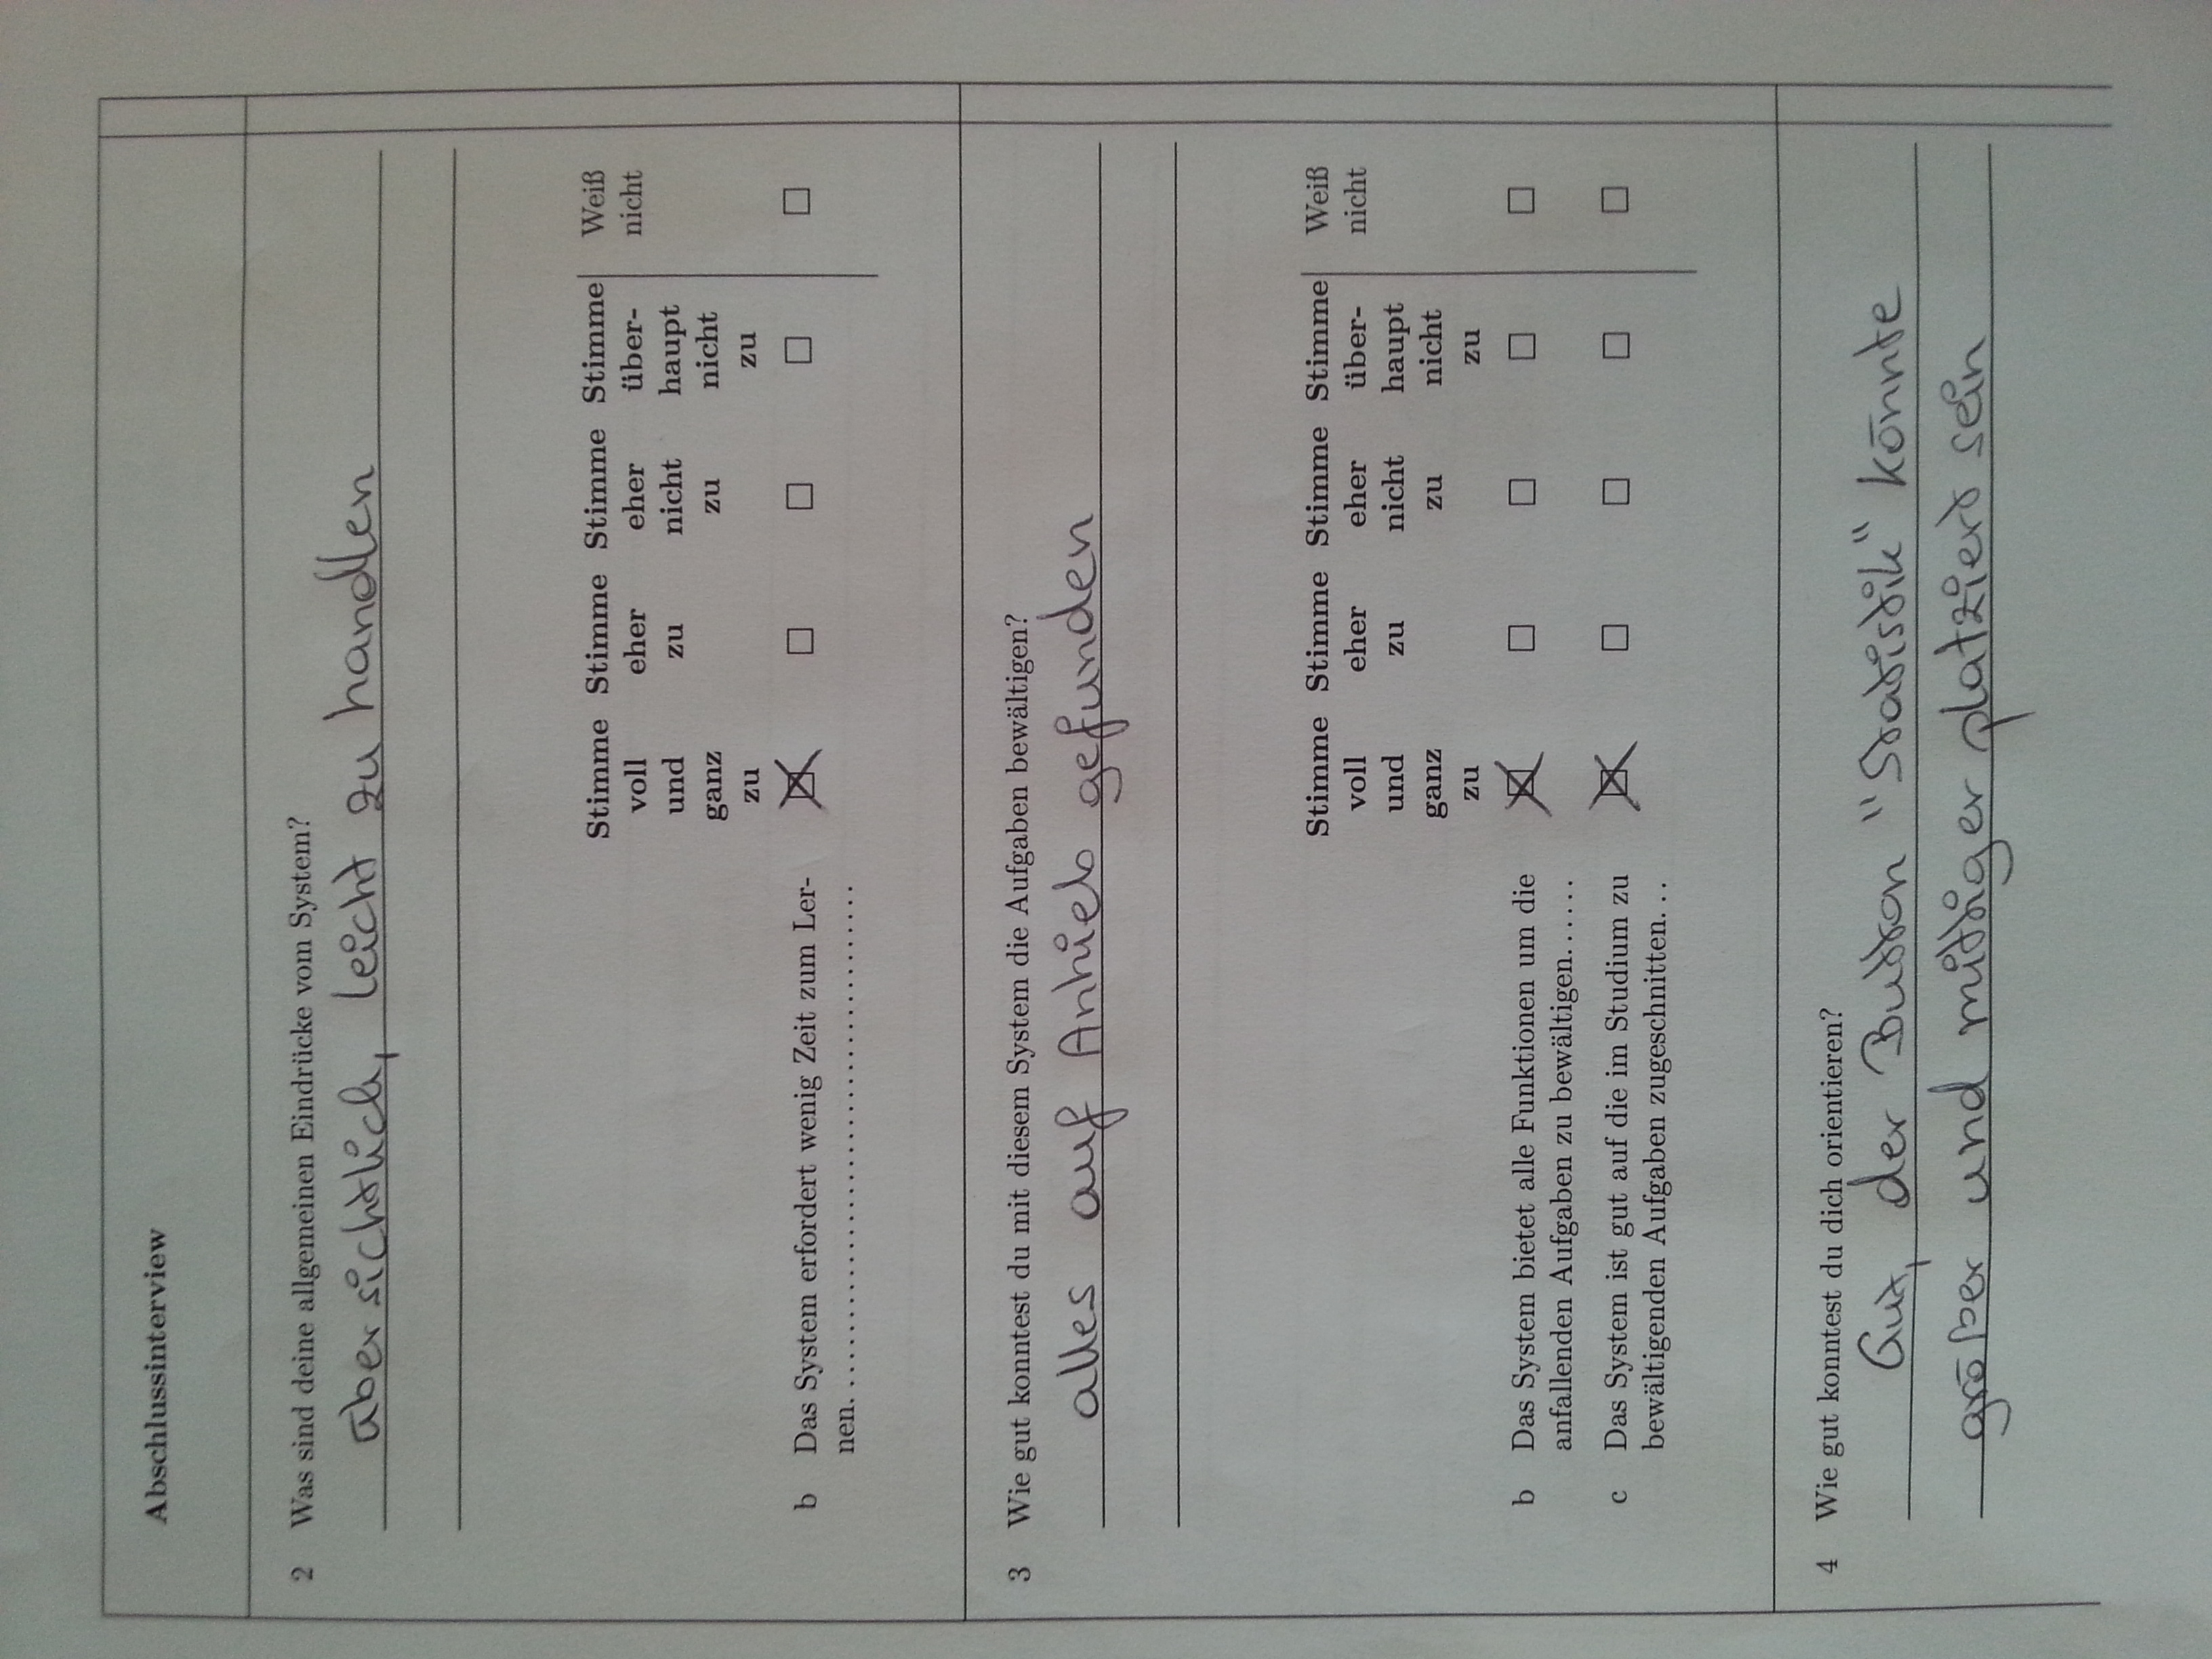 Abschlussinterview
2 Was sind deine allgemeinen Eindrücke vom System?
übersichtlich, leicht zu handlen
Stimme Stimme Stimme Stimme Weiß
voll eher eher über- nicht
und zu nicht haupt
ganz zu nicht
zu zu
b Das System erfordert wenig Zeit zum Ler-
nen. . . . . . . . . . . . . . . . . . . . . . . . . . . . . . . . . . . . . .
3 Wie gut konntest du mit diesem System die Aufgaben bewältigen?
alles auf Anhieb gefunden
Stimme Stimme Stimme Stimme Weiß
voll eher eher über- nicht
und zu nicht haupt
ganz zu nicht
zu zu
b Das System bietet alle Funktionen um die
anfallenden Aufgaben zu bewältigen. . . . . .
c Das System ist gut auf die im Studium zu
bewältigenden Aufgaben zugeschnitten. . .
4 Wie gut konntest du dich orientieren?
Gut, der Button "Statistik" könnte
größer und mittiger platziert sein